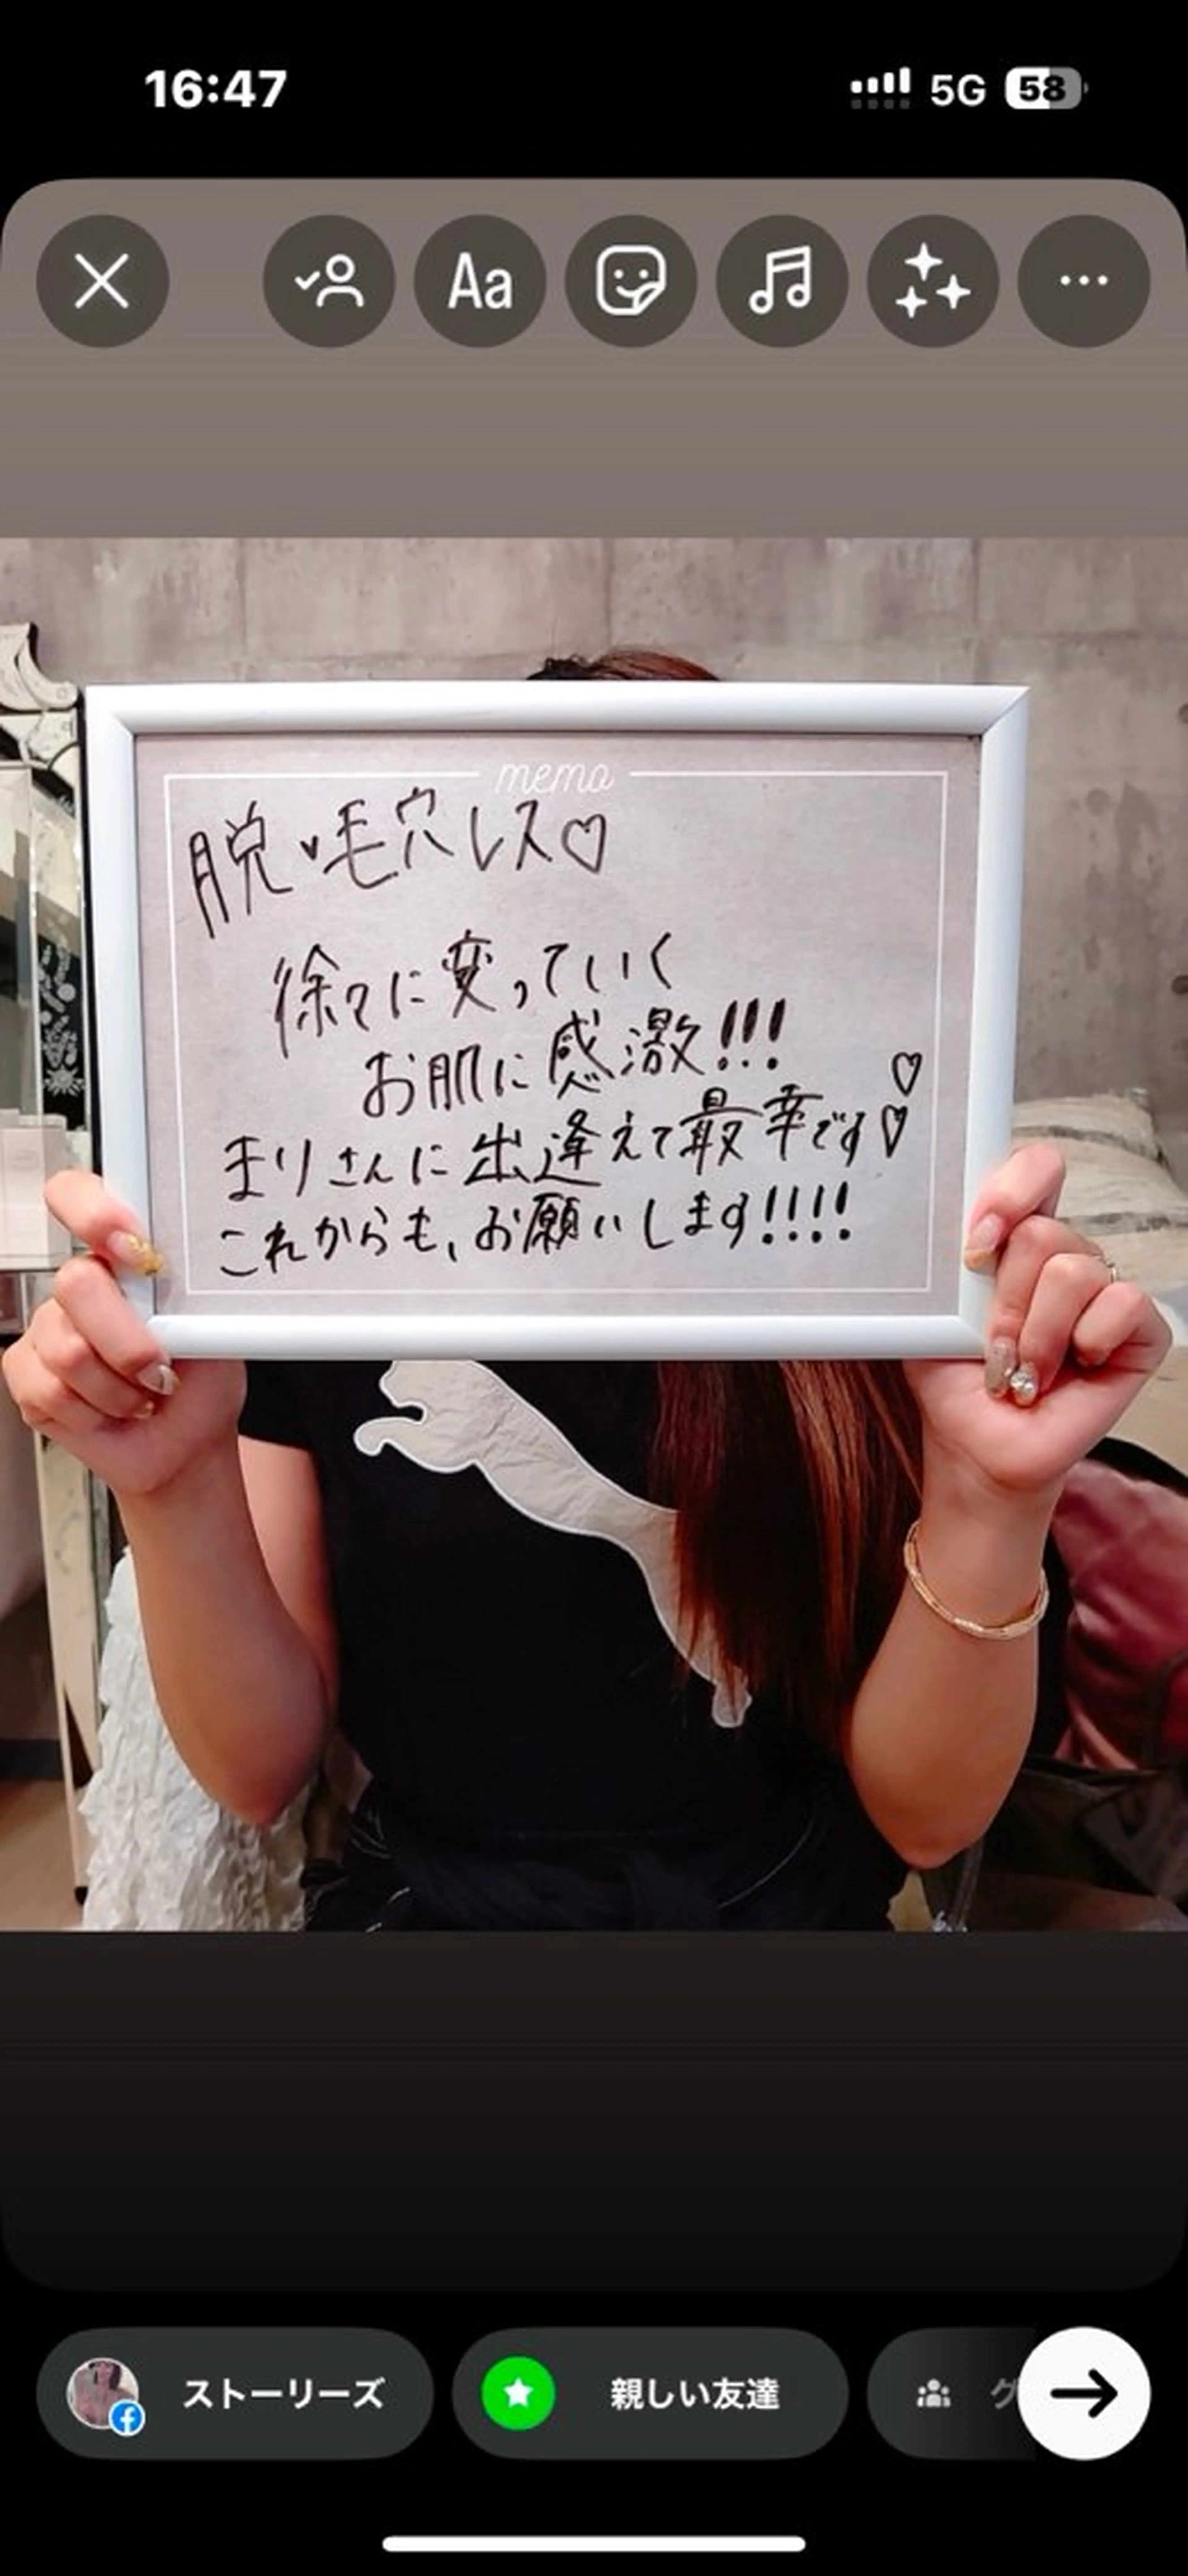 16:47
5G 58
Aa
memo
脱・毛穴レス♡
徐々に変っていく
お肌に感激!!!
まりさんに出逢えて最幸です♡♡
これからも、お願いします!!!!
ストーリーズ
親しい友達
グ